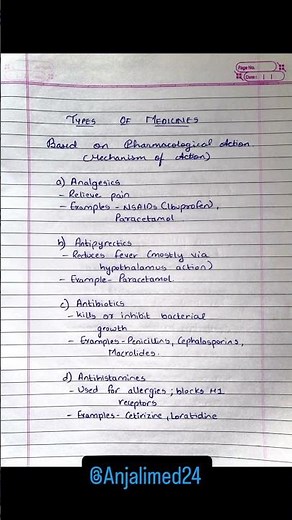 Page No.
Date: | |
TYPES OF MEDICINES
Based on Pharmacological Action
(Mechanism of Action)
a) Analgesics
- Relieve pain
- Examples - NSAIDs (Ibuprofen),
Paracetamol
b) Antipyrectics
- Reduces fever (mostly via
hypothalamus action)
- Example - Paracetamol.
c) Antibiotics
- Kills or inhibit bacterial
growth
- Examples - Penicillins, Cephalosporins,
Macrolides.
d) Antihistamines
- Used for allergies ; blocks H1
receptors
- Examples - Cetirizine, Loratidine
@Anjalimed24